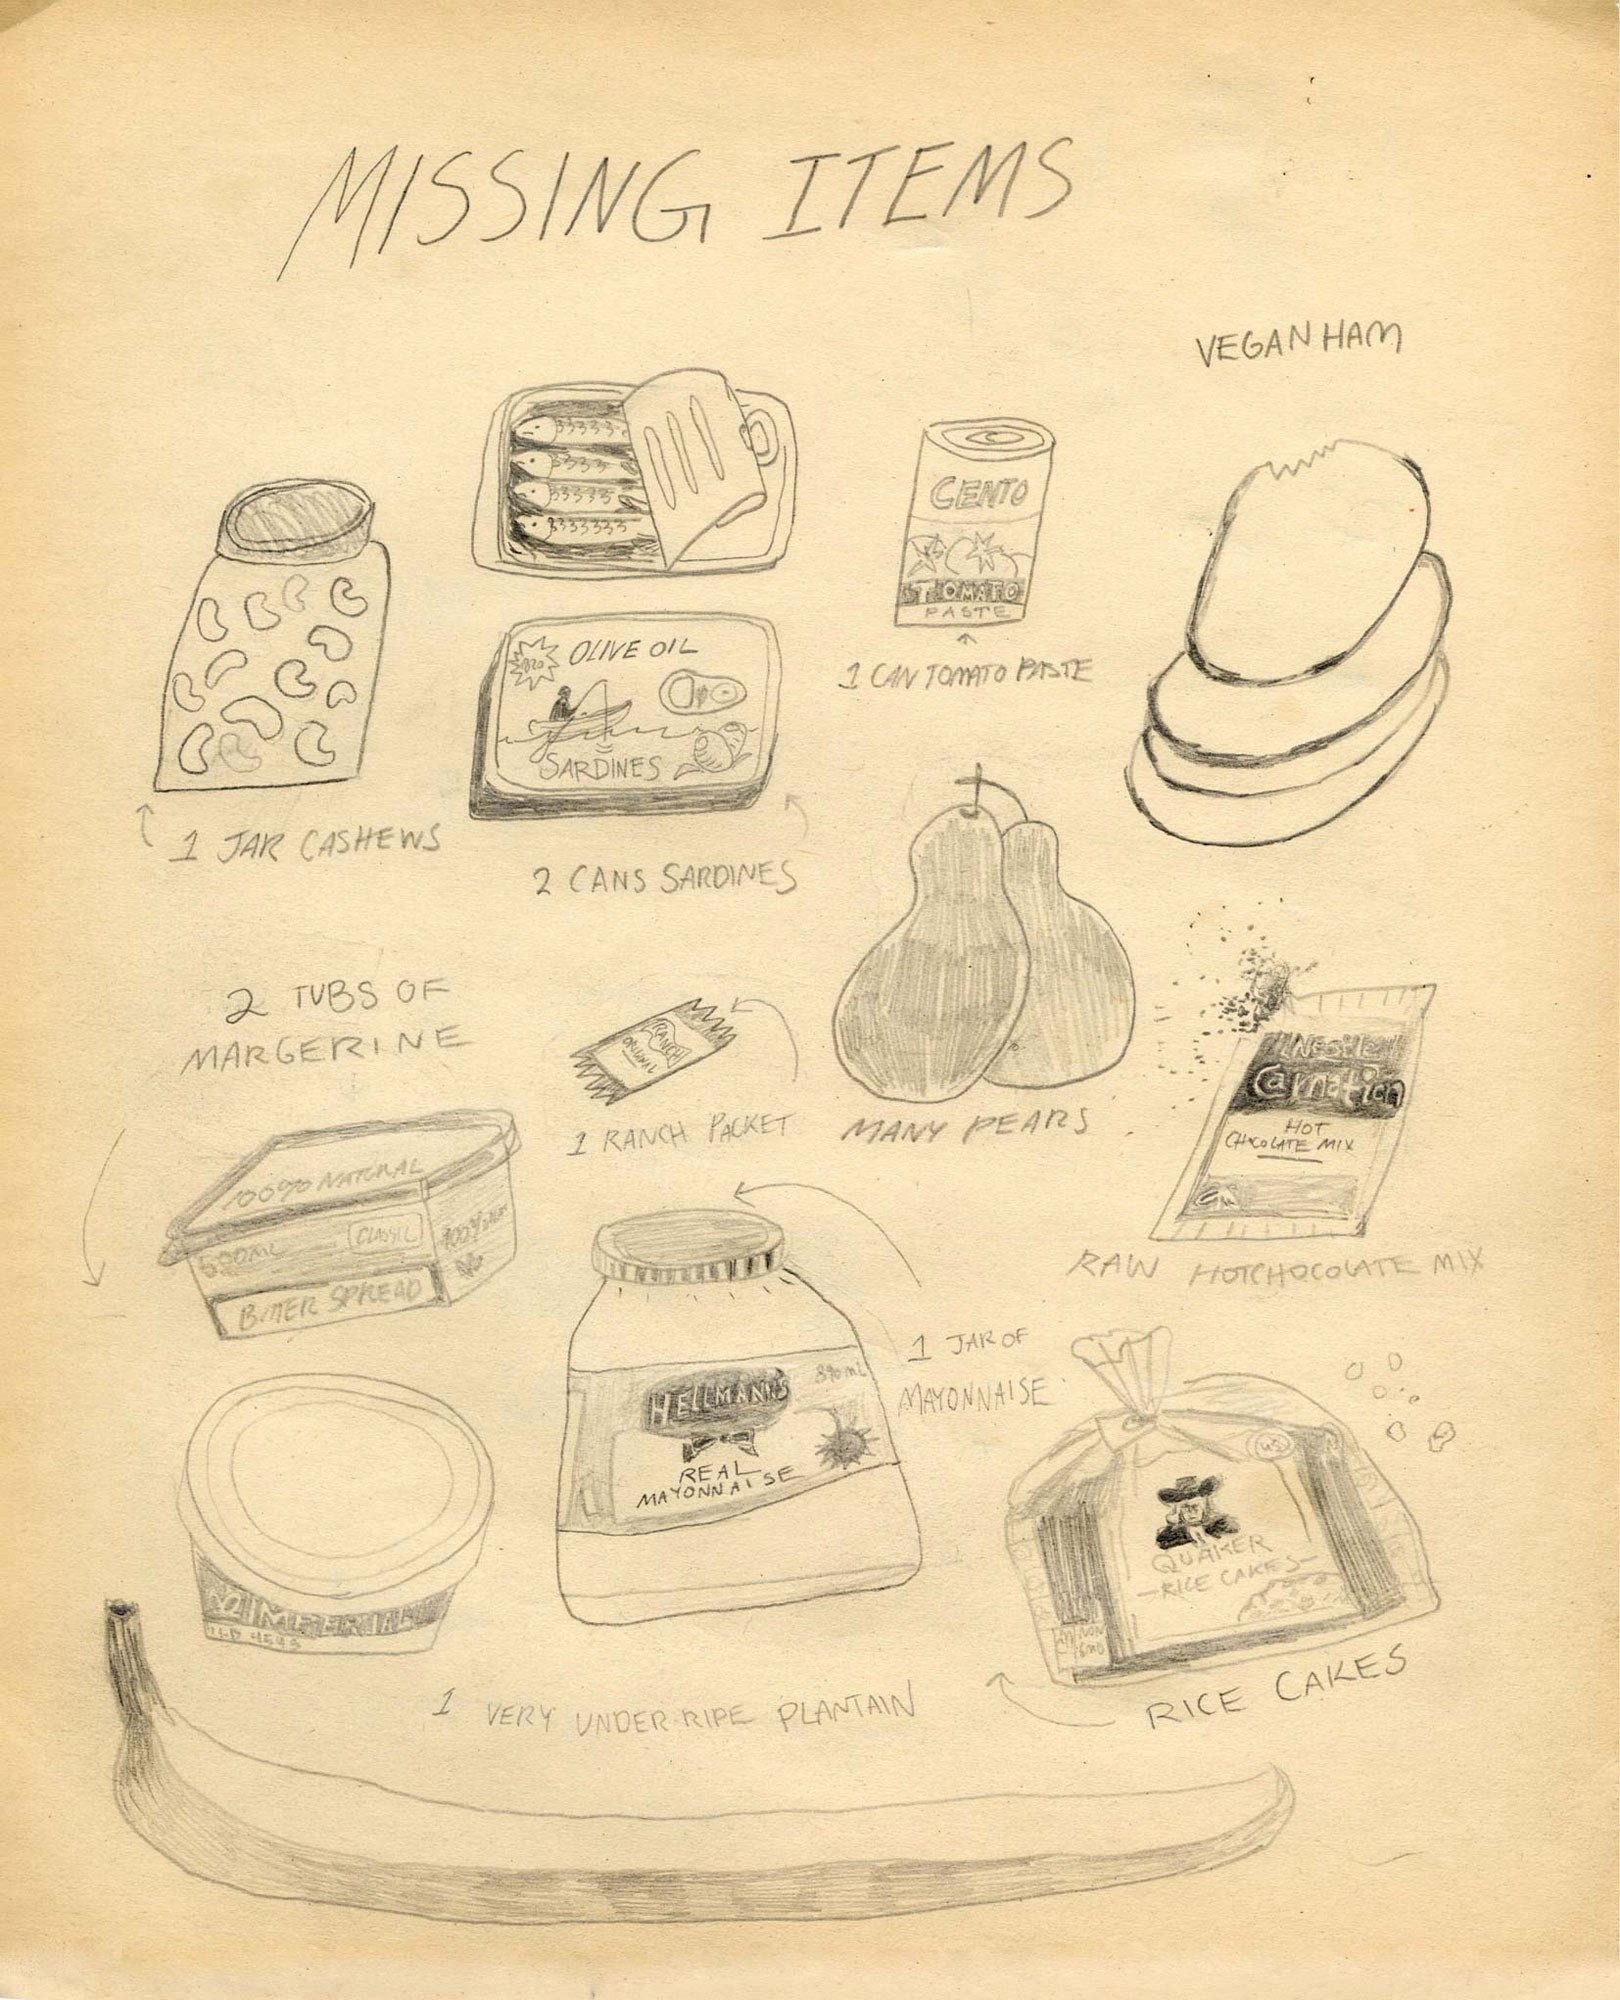 MISSING ITEMS
VEGAN HAM
CENTO
TOMATO
PASTE
1 CAN TOMATO PASTE
OLIVE OIL
SARDINES
1 JAR CASHEWS
2 CANS SARDINES
2 TUBS OF
MARGERINE
RANCH
ORIGINAL
1 RANCH PACKET
MANY PEARS
Nestle
Carnation
HOT
CHOCOLATE MIX
RAW HOTCHOCOLATE MIX
100% NATURAL
500ML
CLASSIC
100%
BUTTER SPREAD
HELLMANN'S
890 mL
REAL
MAYONNAISE
1 JAR OF
MAYONNAISE
QUAKER
-RICE CAKES-
NON
GMO
IMPERIAL
RICE CAKES
1 VERY UNDER-RIPE PLANTAIN